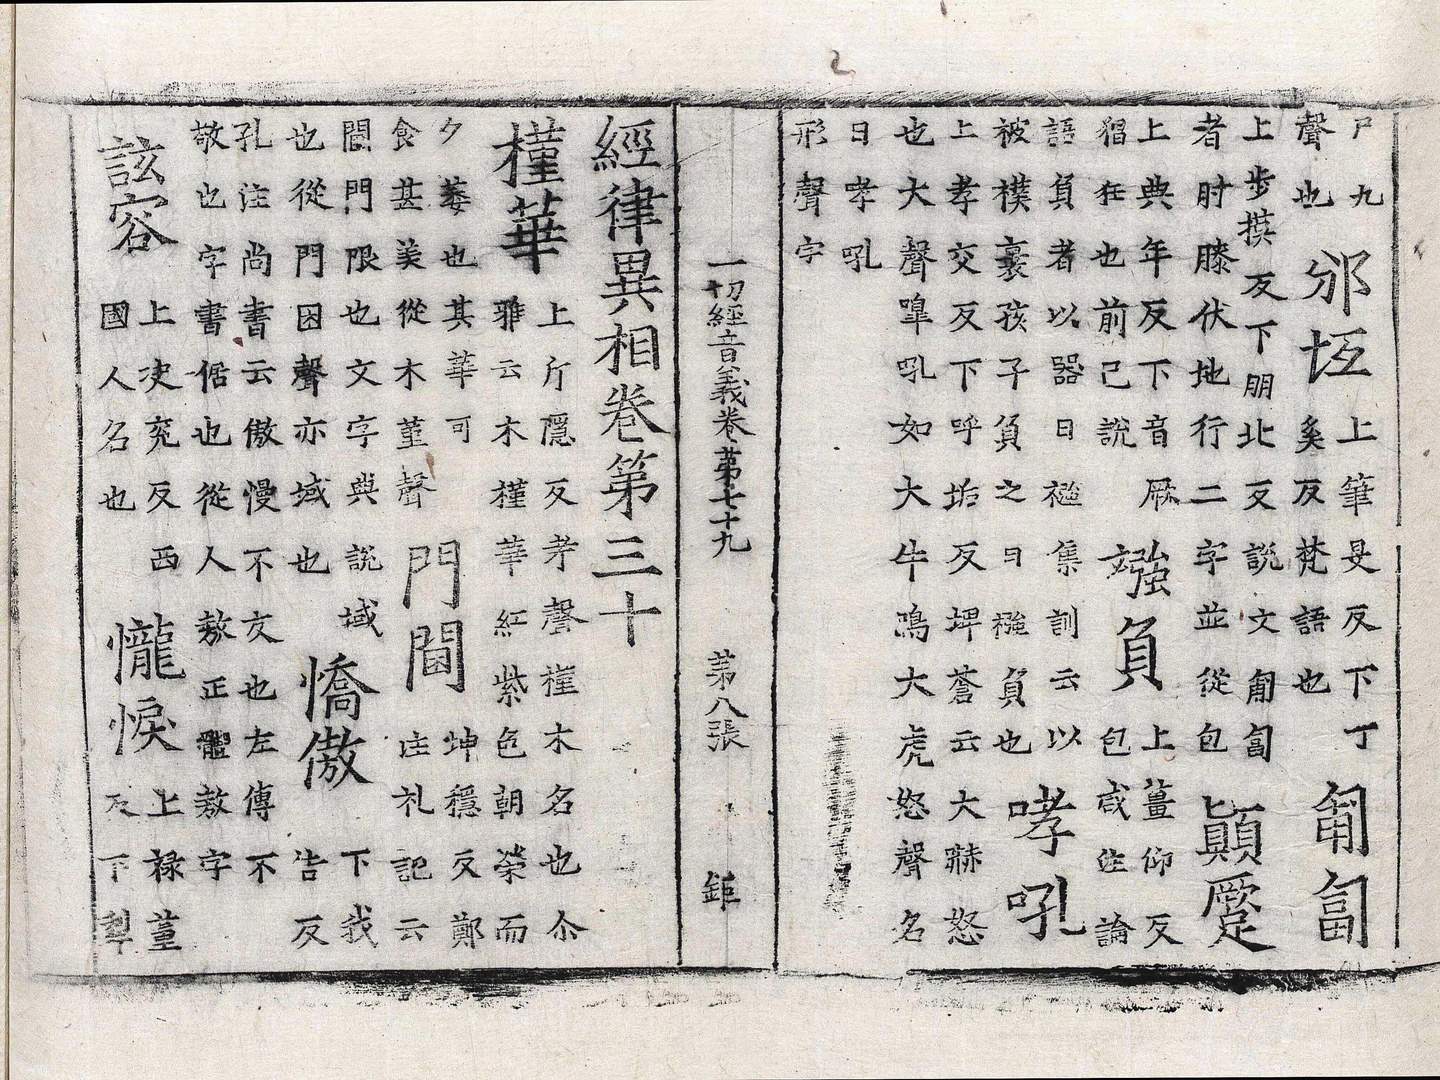 尸九
聲也
邠坘
上筆旻反下丁
奚反梵語也
匍匐
上步摸反下朋北反說文匍匐
者肘膝伏地行二字並從包
顚蹷
上典年反下音厥
猖狂也前已說
襁負
上薑仰反
包咸注論
語負者以器曰襁集訓云以
被襆裹孩子負之曰襁負也
哮吼
上孝交反下呼垢反埤蒼云大怒
也大聲嘷吼如大牛鳴大虎怒聲名
曰哮吼
形聲字
一切經音義卷第七十九 第八張 鉅
經律異相卷第三十
槿華
上斤隱反考聲槿木名也尒
雅云木槿華紅紫色朝榮而
夕萎也其華可
食甚美從木堇聲
門閫
坤穩反鄭
注礼記云
閫門限也文字典說域
也從門困聲亦域也
憍傲
下我
告反
孔注尚書云傲慢不友也左傳不
敬也字書倨也從人敖正體敖字
詃容
上决兖反西
國人名也
㦬悷
上祿董
反下犁